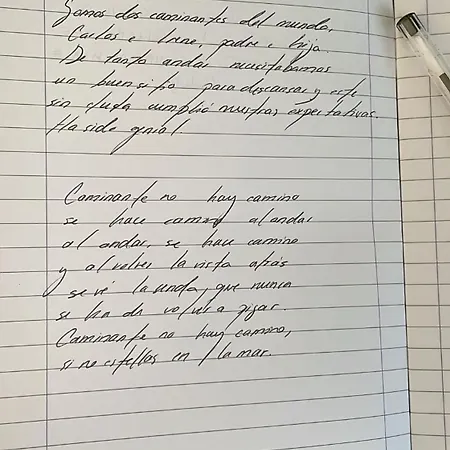 Somos dos caminantes del mundo,
Carlos e Irene, padre e hija.
De tanto andar necesitabamos
un buen sitio para descansar y este
sin duda cumplió nuestras expectativas.
Ha sido genial
Caminante no hay camino
se hace camino al andar
al andar, se hace camino
y al volver la vista atrás
se vé la senda, que nunca
se ha de volver a pisar.
Caminante no hay camino,
si no estellas en la mar.